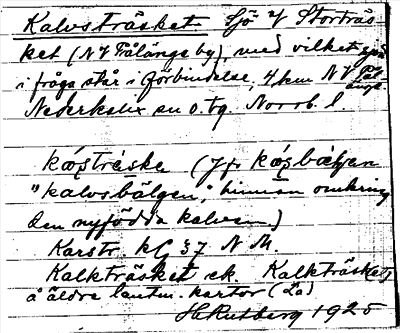 Kalvsträsket. Sjö v Storträs-
ket (NV Pålänge by), med vilket sjön
i fråga står i förbindelse, 4 km NV Pål-
änge
Nederkalix sn o. tg. Norrb. l.
kágträske (Jfr kágbäljen
"kalvsbälgen", hinnan omkring
den nyfödda kalven)
Karstr. kG § 7 N M.
Kalkträsket ek. Kalkträsket
å äldre lantm. kartor (La)
H. Rutberg 1925